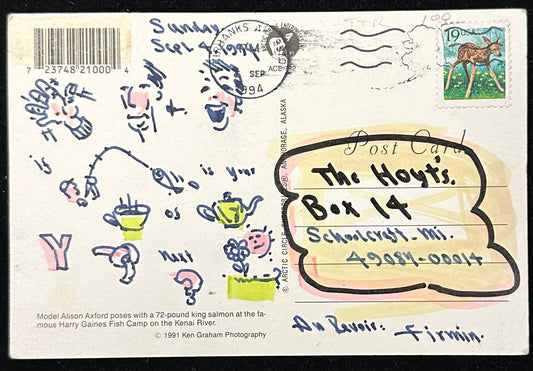 Sunday
Sept 4, 1994
7 23748 21000 4
FAIRBANKS AK
SEP
1994
19 USA
is
is your
os
Y
next
Model Alison Axford poses with a 72-pound king salmon at the fa-
mous Harry Gaines Fish Camp on the Kenai River.
© 1991 Ken Graham Photography
Post Card
The Hoyt's.
Box 14
Schoolcraft. Mi.
49087-00014
Au Revoir:
Firmin.